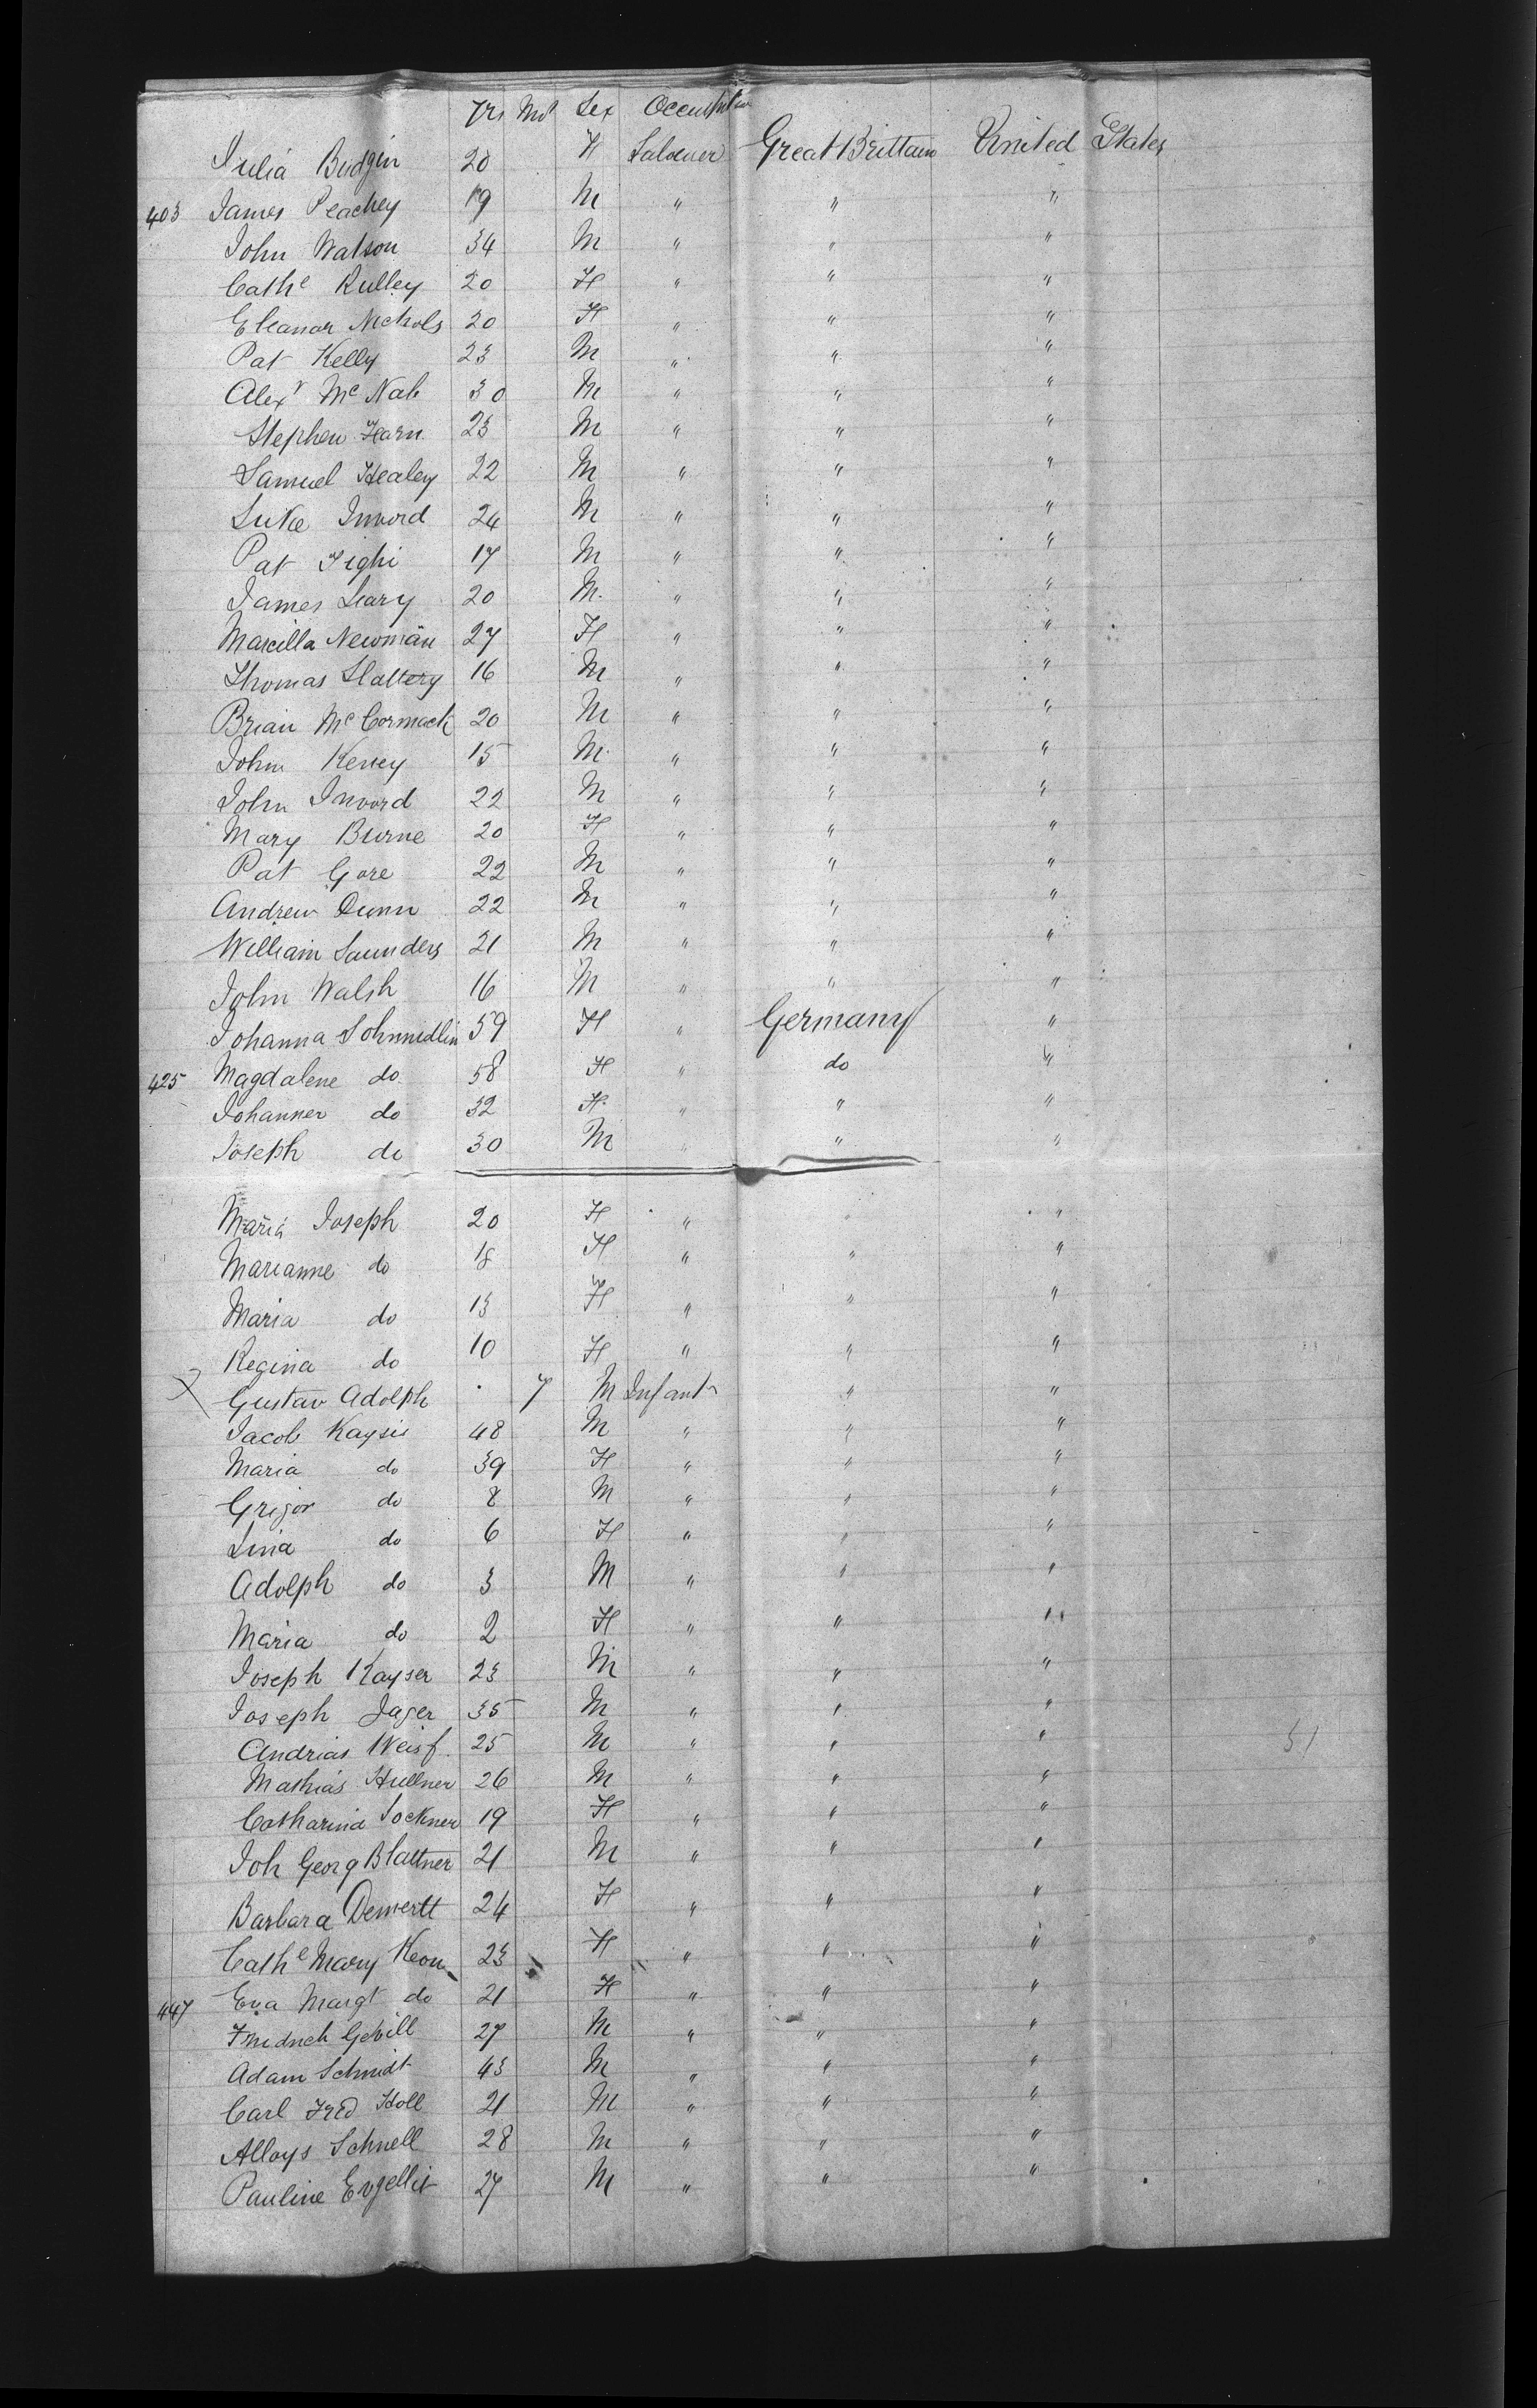 Yrs Mos Sex Occupation
Julia Budgin 20 F Labourer Great Brittain United States
403 James Peachey 19 M " " "
John Watson 34 M " " "
Cathe Kulley 20 F " " "
Eleanor Nichols 20 F " " "
Pat Kelly 23 M " " "
Alexr Mc Nab 30 M " " "
Stephen Harn 23 M " " "
Samuel Healey 22 M " " "
Luke Inword 24 M " " "
Pat Tighi 17 M " " "
James Leary 20 M. " " "
Marcilla Newman 27 F " " "
Thomas Slattery 16 M " " "
Brian Mc Cormack 20 M " " "
John Kevey 15 M. " " "
John Inword 22 M " " "
Mary Burne 20 F " " "
Pat Gore 22 M " " "
Andrew Dunn 22 M " " "
William Saunders 21 M " " "
John Walsh 16 M " " "
Johanna Schmidlin 59 F " Germany "
425 Magdalene do 58 F " do "
Johanner do 32 F. " " "
Joseph do 30 M " " "
Maria Joseph 20 F " "
Marianne do 18 F " " "
Maria do 13 F " " "
Regina do 10 F " " "
Gustav Adolph 7 M Infant " "
Jacob Kaysir 48 M " " "
Maria do 39 F " " "
Grigor do 8 M " " "
Lina do 6 F " " "
Adolph do 3 M " " "
Maria do 2 F " " "
Joseph Kayser 23 M " " "
Joseph Jager 35 M " " "
Andrias Weisf. 25 M " " " 51
Mathias Hullner 26 M " " "
Catharina Lockner 19 F " " "
Joh Georg Blattner 21 M " " "
Barbara Demertt 24 F " " "
Cathe Mary Keon 23 F " " "
447 Eva Margt do 21 F " " "
Friedrich Gevill 27 M " " "
Adam Schmidt 43 M " " "
Carl Fred Holl 21 M " " "
Alloys Schnell 28 M " " "
Pauline 27 M " " "